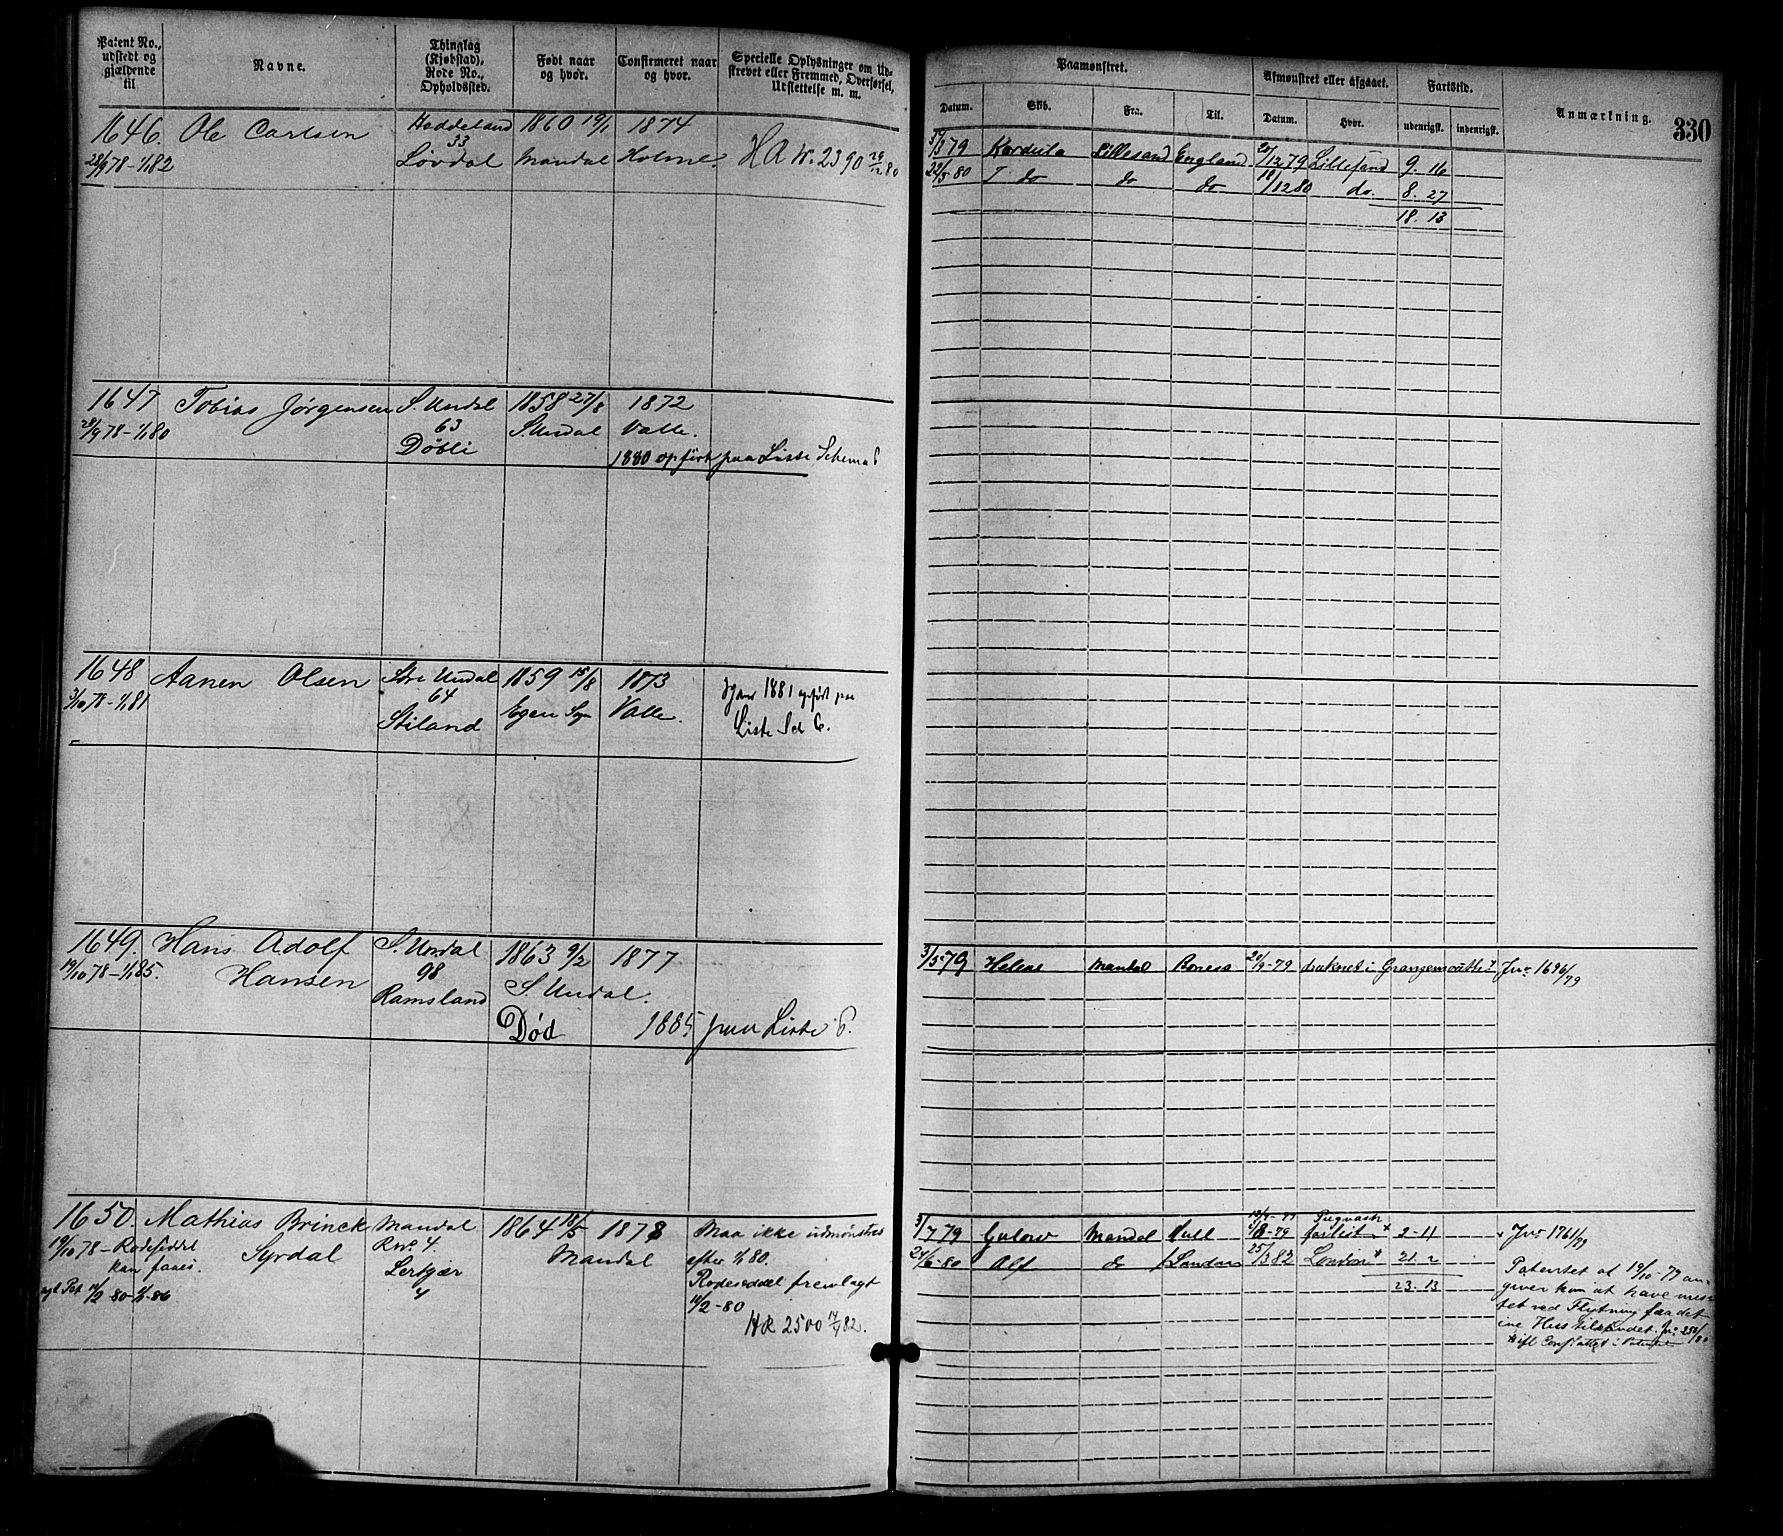 Patent No., udstedt og gjældende til
Navne.
Thinglag (Kjøbstad), Rode No., Opholdssted.
Født naar og hvor.
Confirmeret naar og hvor.
Specielle Oplysninger om Udskrevet eller Fremmed, Overførsel, Udslettelse m. m.
Paamønstret.
Datum.
Skb.
Fra.
Til.
Afmønstret eller afgaaet.
Datum.
Hvor.
Fartstid.
udenrigsk.
indenrigsk.
Anmærkning.
330
1646. Ole Carlsen Heddeland 1860 19/1 1874
33
28/9 78-1/1 82 Løvdal Mandal Holme HA No. 2390 28/12 80
79 Kordula Lillesand England 20/12 79 Lillesand 9. 16
22/5 80 T do do do 18/12 80 do. 8. 27
18. 13
1647 Tobias Jørgensen S. Undal 1858 27/8 1872
28/9 78-1/1 80 63 S. Undal Valle.
Døbli
1880 opført paa Liste Schema 6
1648 Aanen Olsen Søre Undal 1859 15/8 1873
3/10 78-1/1 81 64 Egen Sogn Valle.
Stiland
1881 opført paa
Liste Sch 6.
1649. Hans Adolf S. Undal 1863 9/2 1877
19/10 78-1/1 85. Hansen 98 S. Undal.
Ramsland
Død 1885 paa Liste 6.
3/5 79 Helene Mandal Boness 20/9-79 druknet i Grangemouth Jno 1696/79
1650. Mathias Brinck Mandal 1864 18/5 1878
Syrdal Rno. 4. Mandal
19/10 78- Rodeseddel
kan faaes. Lerkjær
4
nyt Pat 11/2 80-1/1-86
Maa ikke udmønstres
efter 1/1 80.
Rodeseddel fremlagt
11/2-80
HR 2500 82.
3/7 79 Mandal Hull 8-79 2-11 Jno 1761/79
24/6-80 Alf do London 25/3 82 London 21. 2
23. 13
Patentet af 19/10-78 an-
giver han at have mis-
tet ved Flytning fra det
ene Hus til Andet. Jno 251/80